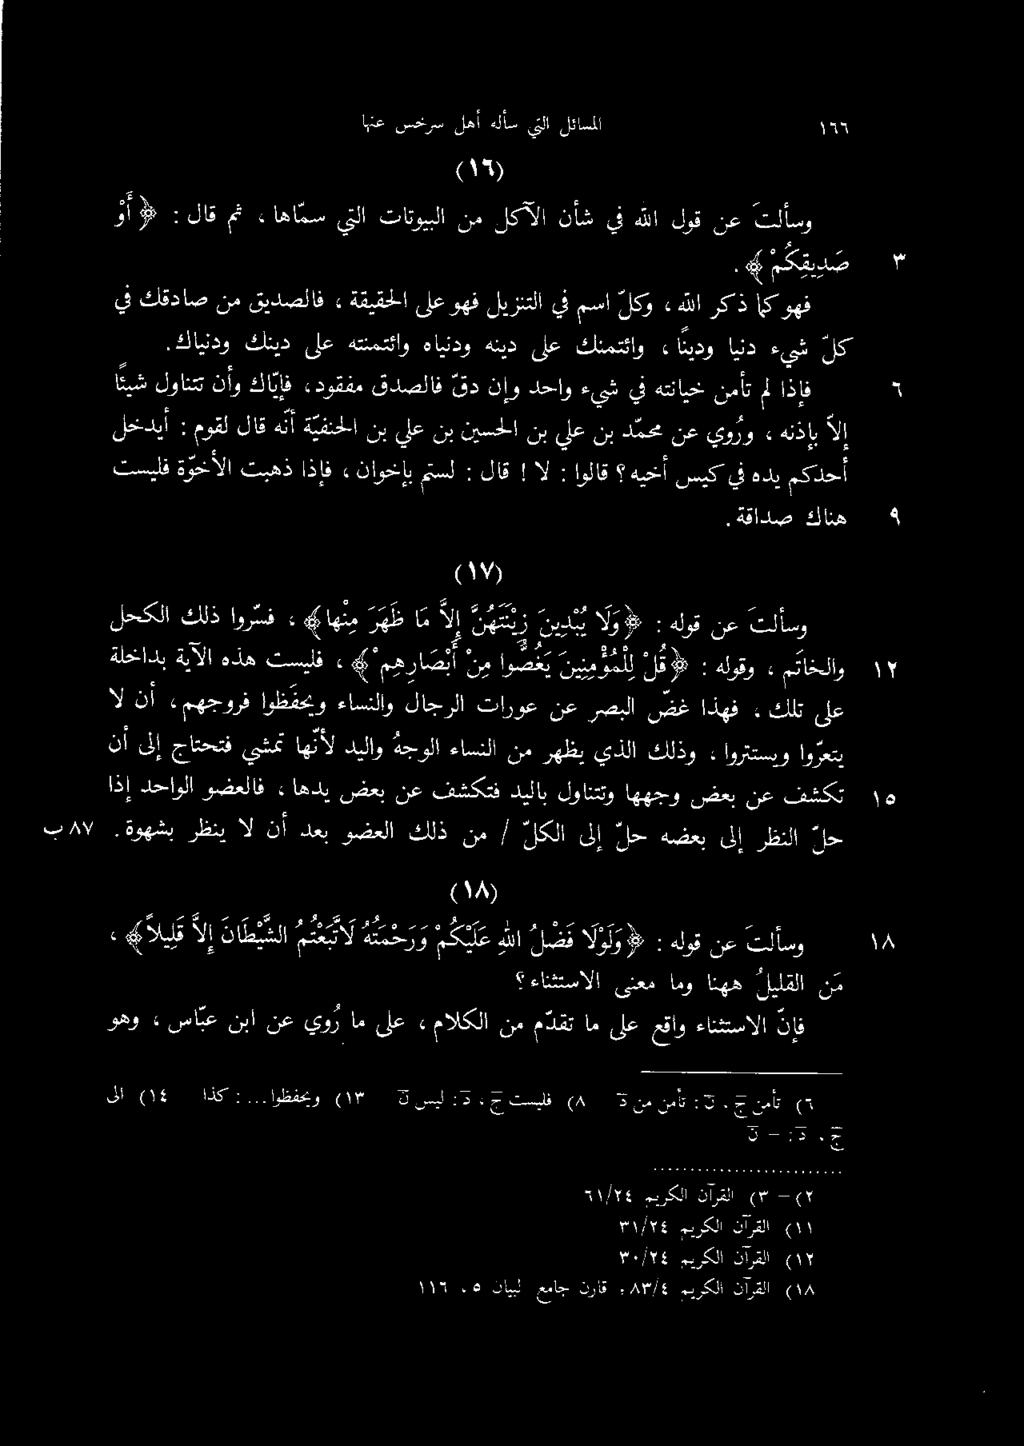 ١٦٦
المسائل التي سأله أهل سرخس عنها
(١٦)
وسألتَ عن قول الله في شأن الآكل من البيوتات التي سمّاها ، ثم قال : ﴿ أَوْ
٣ صَدِيقِكُمْ ﴾ .
فهو كما ذكر الله ، وكلّ اسم في التنزيل فهو على الحقيقة ، فالصديق من صادقك في
كلّ شيء دنيا ودينًا ، وائتمنك على دينه ودنياه وائتمنته على دينك ودنياك .
٦ فإذا لم تأمن خيانته في شيء واحد وإن دقّ فالصدق مفقود ، فإيّاك وأن تتناول شيئًا
إلاّ بإذنه ، ورُوي عن محمّد بن علي بن الحسين بن علي بن الحنفيّة أنّه قال لقوم : أيدخل
أحدكم يده في كيس أخيه ؟ قالوا : لا ! قال : لستم بإخوان ، فإذا ذهبت الأخوّة فليست
٩ هناك صداقة .
(١٧)
وسألتَ عن قوله : ﴿ وَلَا يُبْدِينَ زِينَتَهُنَّ إِلاَّ مَا ظَهَرَ مِنْها ﴾ ، فسّروا ذلك الكحل
١٢ والخاتَم ، وقوله : ﴿ قُلْ لِلْمُؤْمِنِينَ يَغُضُّوا مِنْ أَبْصَارِهِمْ ﴾ ، فليست هذه الآية بداخلة
على تلك ، فهذا غضّ البصر عن عورات الرجال والنساء ويحفَظوا فروجهم ، أن لا
يتعرّوا ويستتروا ، وذلك الذي يظهر من النساء الوجهُ واليد لأنّها تمشي فتحتاج إلى أن
١٥ تكشف عن بعض وجهها وتتناول باليد فتكشف عن بعض يدها ، فالعضو الواحد إذا
حلّ النظر إلى بعضه حلّ إلى الكلّ / من ذلك العضو بعد أن لا ينظر بشهوة . ٨٧ ب
(١٨)
١٨ وسألتَ عن قوله : ﴿ وَلَوْلَا فَضْلُ اللهِ عَلَيْكُمْ وَرَحْمَتُهُ لَاتَّبَعْتُمُ الشَّيْطَانَ إِلاَّ قَلِيلاً ﴾ ،
مَن القليلُ ههنا وما معنى الاستثناء ؟
فإنّ الاستثناء واقع على ما تقدّم من الكلام ، على ما رُوي عن ابن عبّاس ، وهو
٦) تأمن ج ، ن : تأمن من د ٨) فليست ج ، د : ليس ن ١٣) ويحفظوا ... : كذا ١٤) الى
ج ، د : – ن
٢) – ٣) القرآن الكريم ٦١/٢٤
١١) القرآن الكريم ٣١/٢٤
١٢) القرآن الكريم ٣٠/٢٤
١٨) القرآن الكريم ٨٣/٤ ؛ قارن جامع لبيان ٥ ، ١١٦